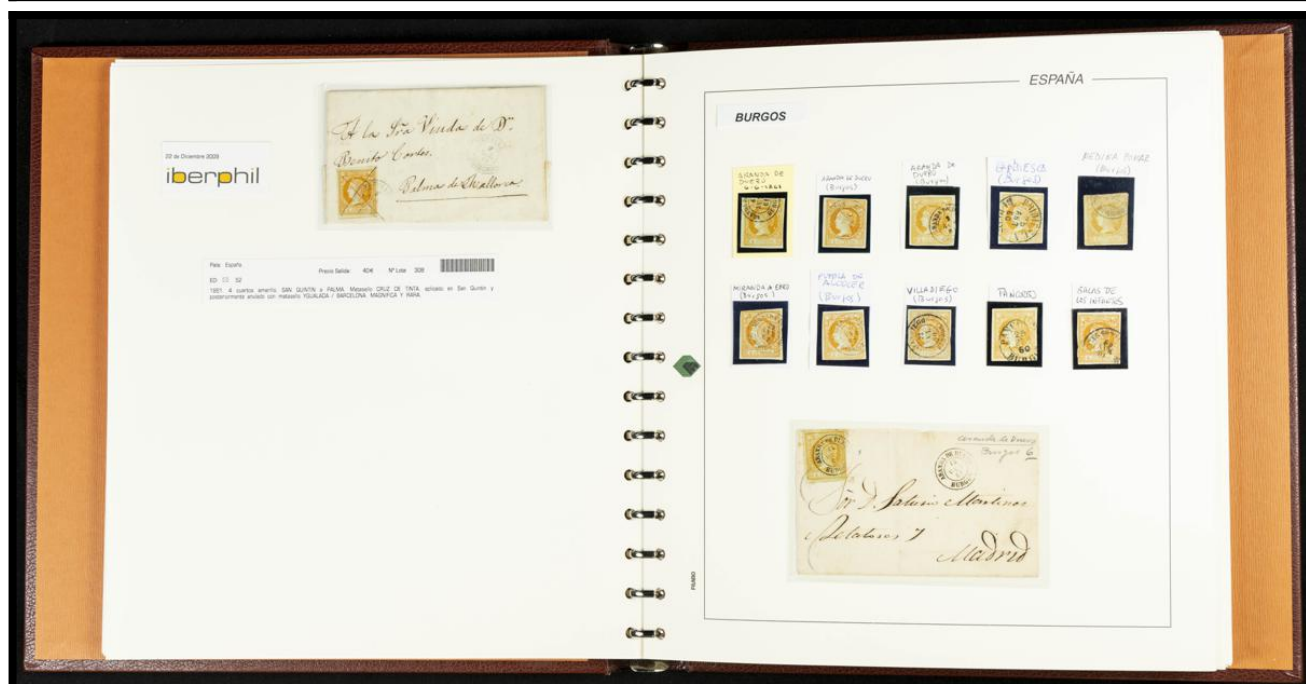 22 de Diciembre 2009
iberphil
A la Sra Viuda de Dn.
Benito Cortes.
Palma de Mallorca.
País: España
Precio Salida: 40€ Nº Lote: 308
ED 52
4 cuartos amarillo. SAN QUINTIN a PALMA. Matasello CRUZ DE TINTA, aplicado en San Quintín y
posteriormente anulado con matasello YGUALADA / BARCELONA. MAGNIFICA Y RARA.
ESPAÑA
BURGOS
ARANDA DE
DUERO
ARANDA DE DUERO
(Burgos)
ARANDA DE
DUERO
(Burgos)
(Burgos)
MEDINA POMAR
(Burgos)
MIRANDA DE EBRO
(Burgos)
PUEBLA DE
(Burgos)
VILLADIEGO
(Burgos)
SALAS DE
LOS INFANTES
Aranda de Duero
Burgos
ARANDA DE DUERO
BURGOS
Sor D. Saturio Martinez
Relatores 7
Madrid
FILABO